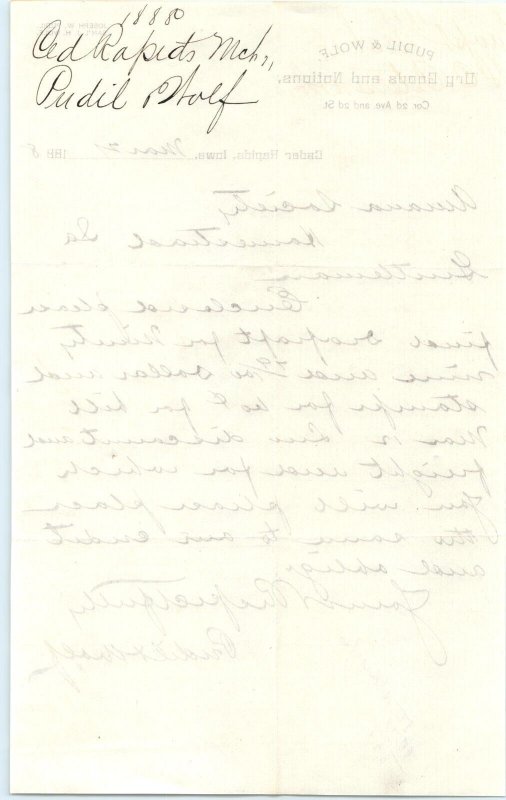 18880
Ced Rapids Mch 2,
Pudil & Wolf
JOSEPH W. PUDIL
PUDIL & WOLF
Dry Goods and Notions,
Cor. 2d Ave. and 2d St.
Cedar Rapids, Iowa, Mar 2 1888
Amana Society
Homestead Ia
Gentlemen
Enclosed please
find draft for Ninety
nine and /100 Dollar and
stamps for 20¢ for bill
Mar 2 less discount and
freight and for which
you will please place
the same to our credit
and oblige
Yours Respectfully
Pudil & Wolf